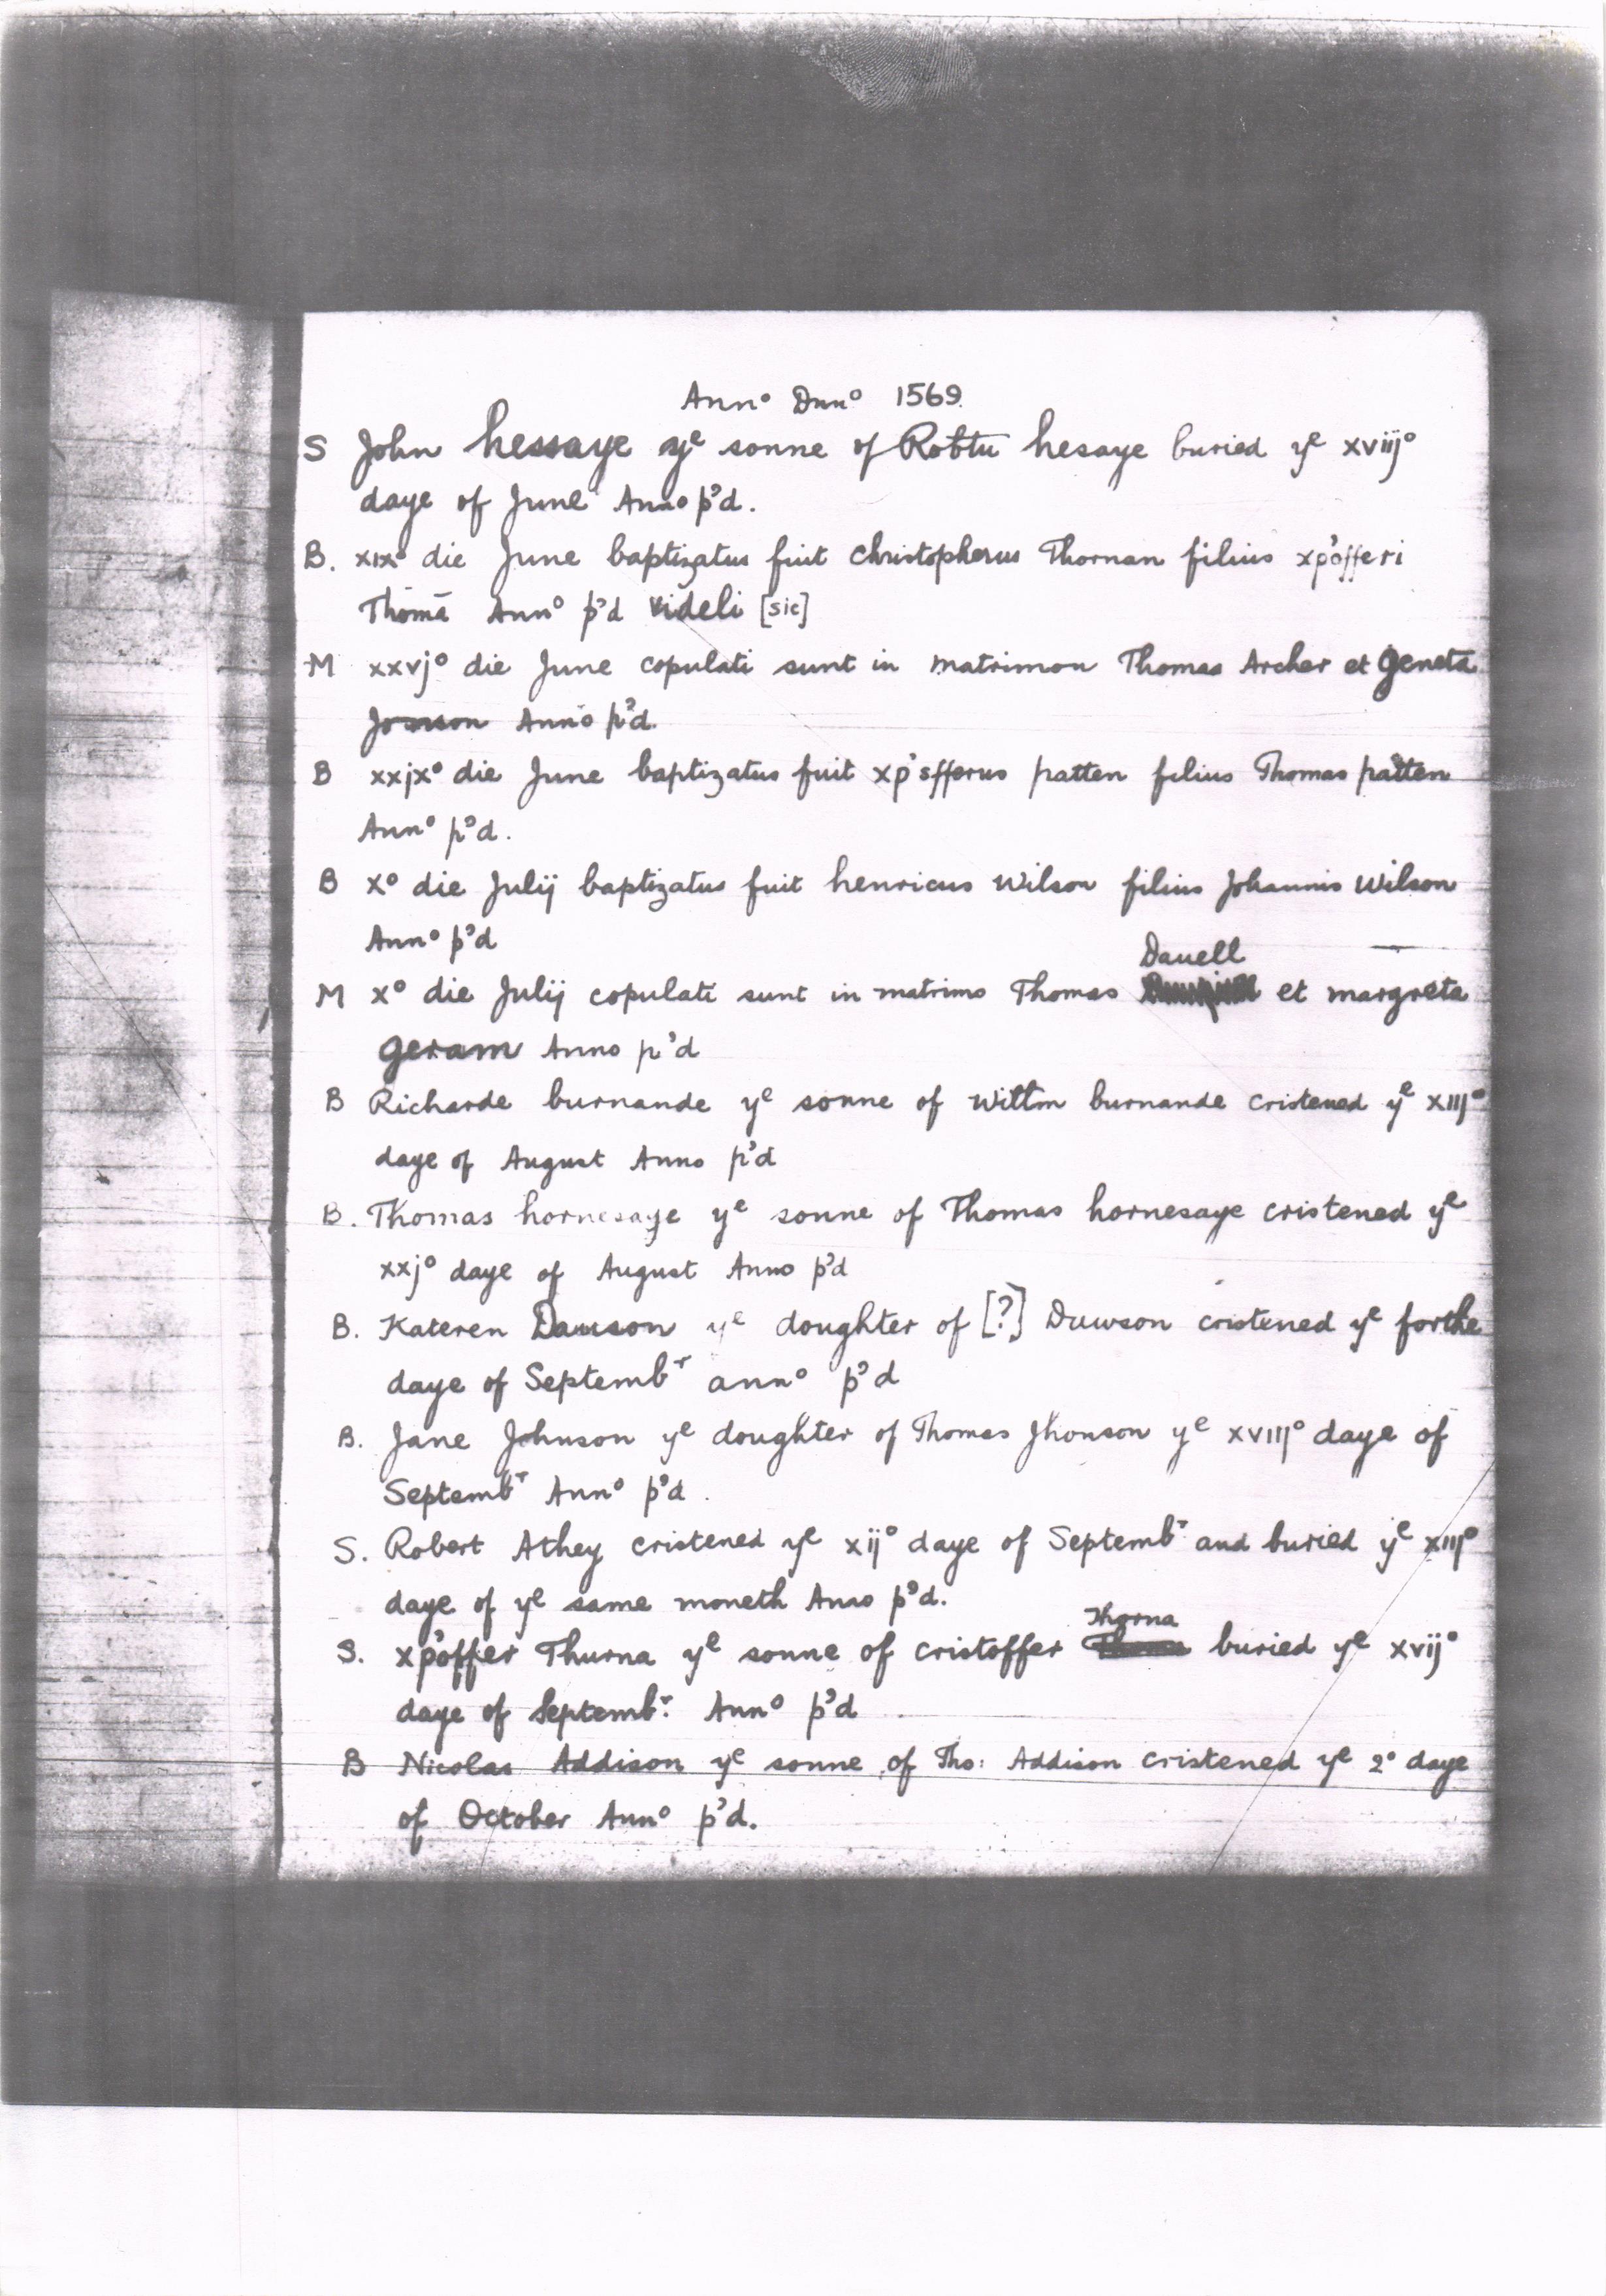 Annº Dnnº 1569
S John hessaye yᵉ sonne of Robtu hesaye buried yᵉ xviijº
daye of June Anno p'd.
B. xixº die June baptizatus fuit christopherus Thornan filius xp'offeri
Thōmā Annº p'd videli [sic]
M xxvjº die June copulati sunt in matrimon Thomas Archer et Geneta
Anno p'd.
B xxjxº die June baptizatus fuit xp'offerus patten filius Thomas patten
Annº p'd.
B xº die Julij baptizatus fuit henricus Wilson filius Johannis Wilson
Annº p'd
Dauell
M xº die Julij copulati sunt in matrimo Thomas et margreta
geram Anno p'd
B Richarde burnande yᵉ sonne of Willm burnande cristened yᵉ xiijº
daye of August Anno p'd
B. Thomas hornesaye yᵉ sonne of Thomas hornesaye cristened yᵉ
xxjº daye of August Anno p'd
B. Kateren Dawson yᵉ doughter of [?] Duwson cristened yᵉ forthe
daye of Septembʳ annº p'd
B. Jane Johnson yᵉ doughter of Thomas Jhonson yᵉ xviijº daye of
Septembʳ Annº p'd.
S. Robert Athey cristened yᵉ xijº daye of Septembʳ and buried yᵉ xiijº
daye of yᵉ same moneth Anno p'd.
Thorna
S. xp'offer Thurna yᵉ sonne of cristoffer buried yᵉ xvijº
daye of Septembʳ. Annº p'd
B Nicolas Addison yᵉ sonne of Tho: Addison cristened yᵉ 2º daye
of October Annº p'd.